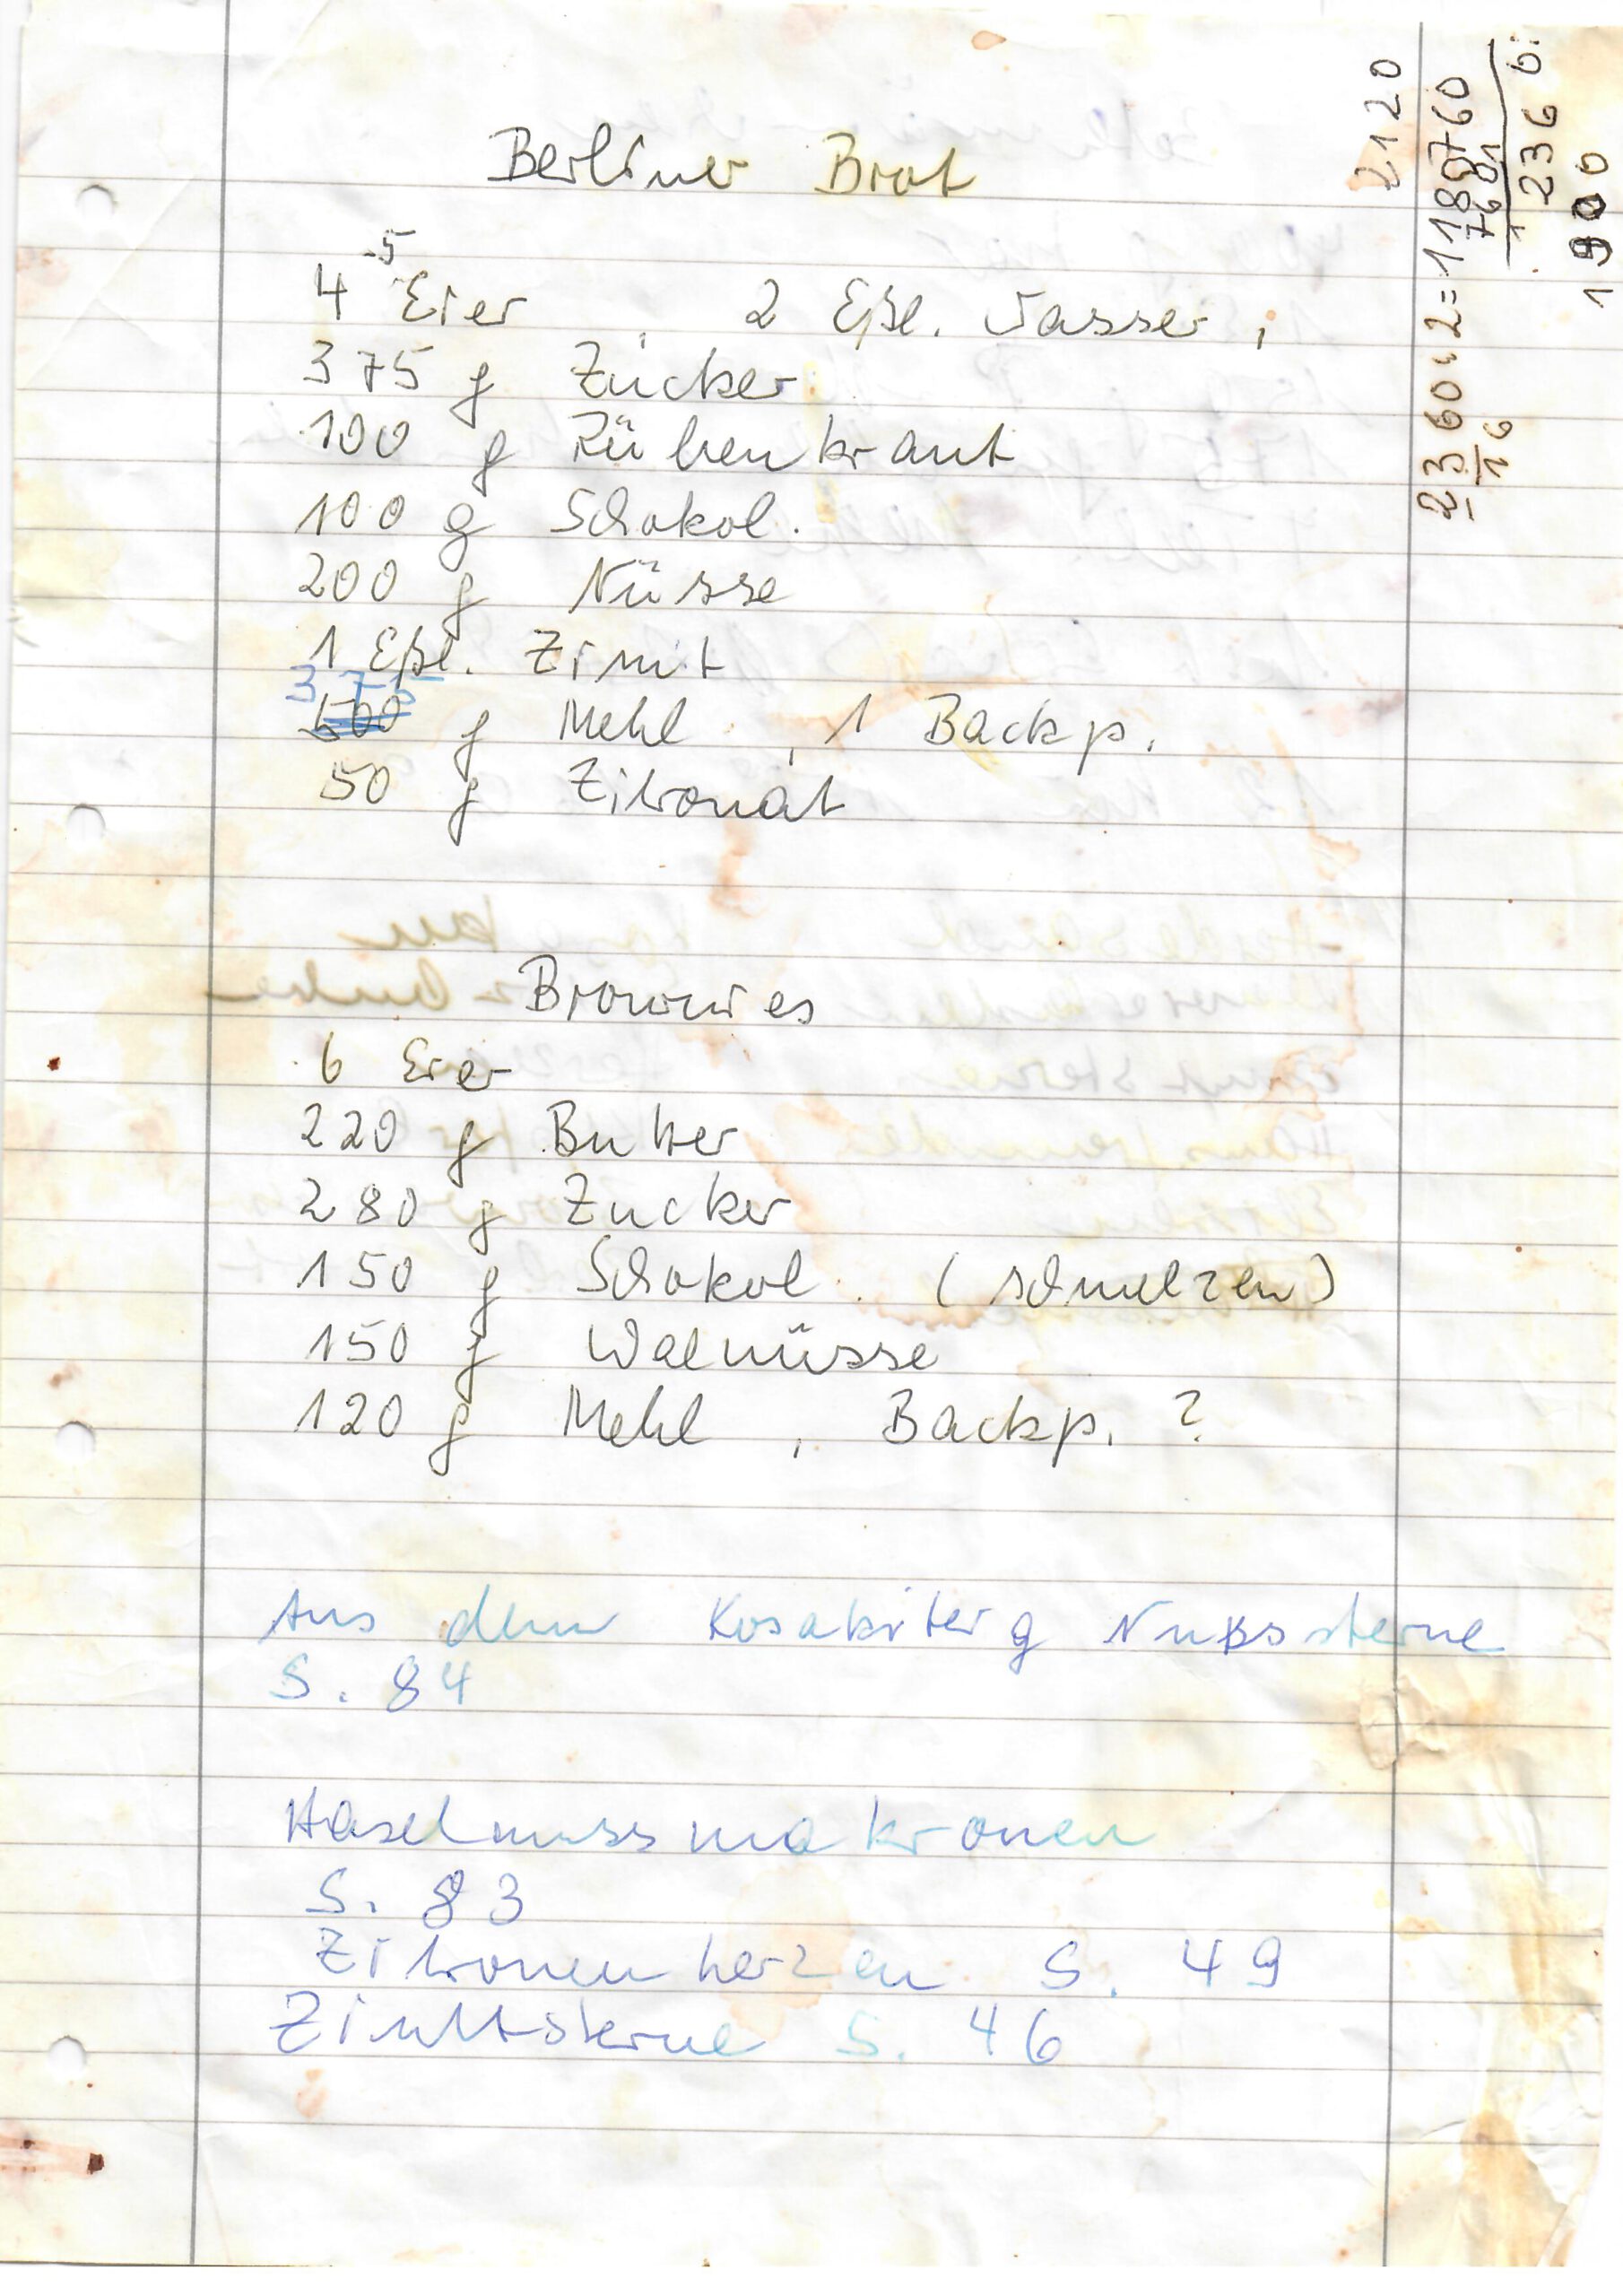 Berliner Brot
4-5 Eier, 2 Eßl. Wasser,
375 g Zucker
100 g Rübenkraut
100 g Schokol.
200 g Nüsse
1 Eßl. Zimt
375
500 g Mehl, 1 Backp.
50 g Zitronat
Brownies
6 Eier
220 g Butter
280 g Zucker
150 g Schokol. (schmelzen)
150 g Walnüsse
120 g Mehl, Backp. ?
Aus dem Nusssterne
S. 84
Haselnussmakronen
S. 83
Zitronenherzen S. 49
Zimtsterne S. 46
2120
1900